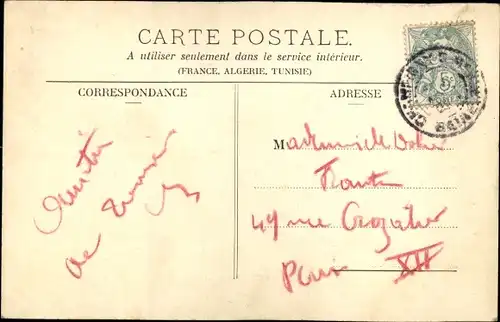 CARTE POSTALE.
A utiliser seulement dans le service intérieur.
(FRANCE, ALGERIE, TUNISIE)
CORRESPONDANCE
ADRESSE
5
Amitié
de
Mademoiselle
49 rue Crozatier
Paris XII